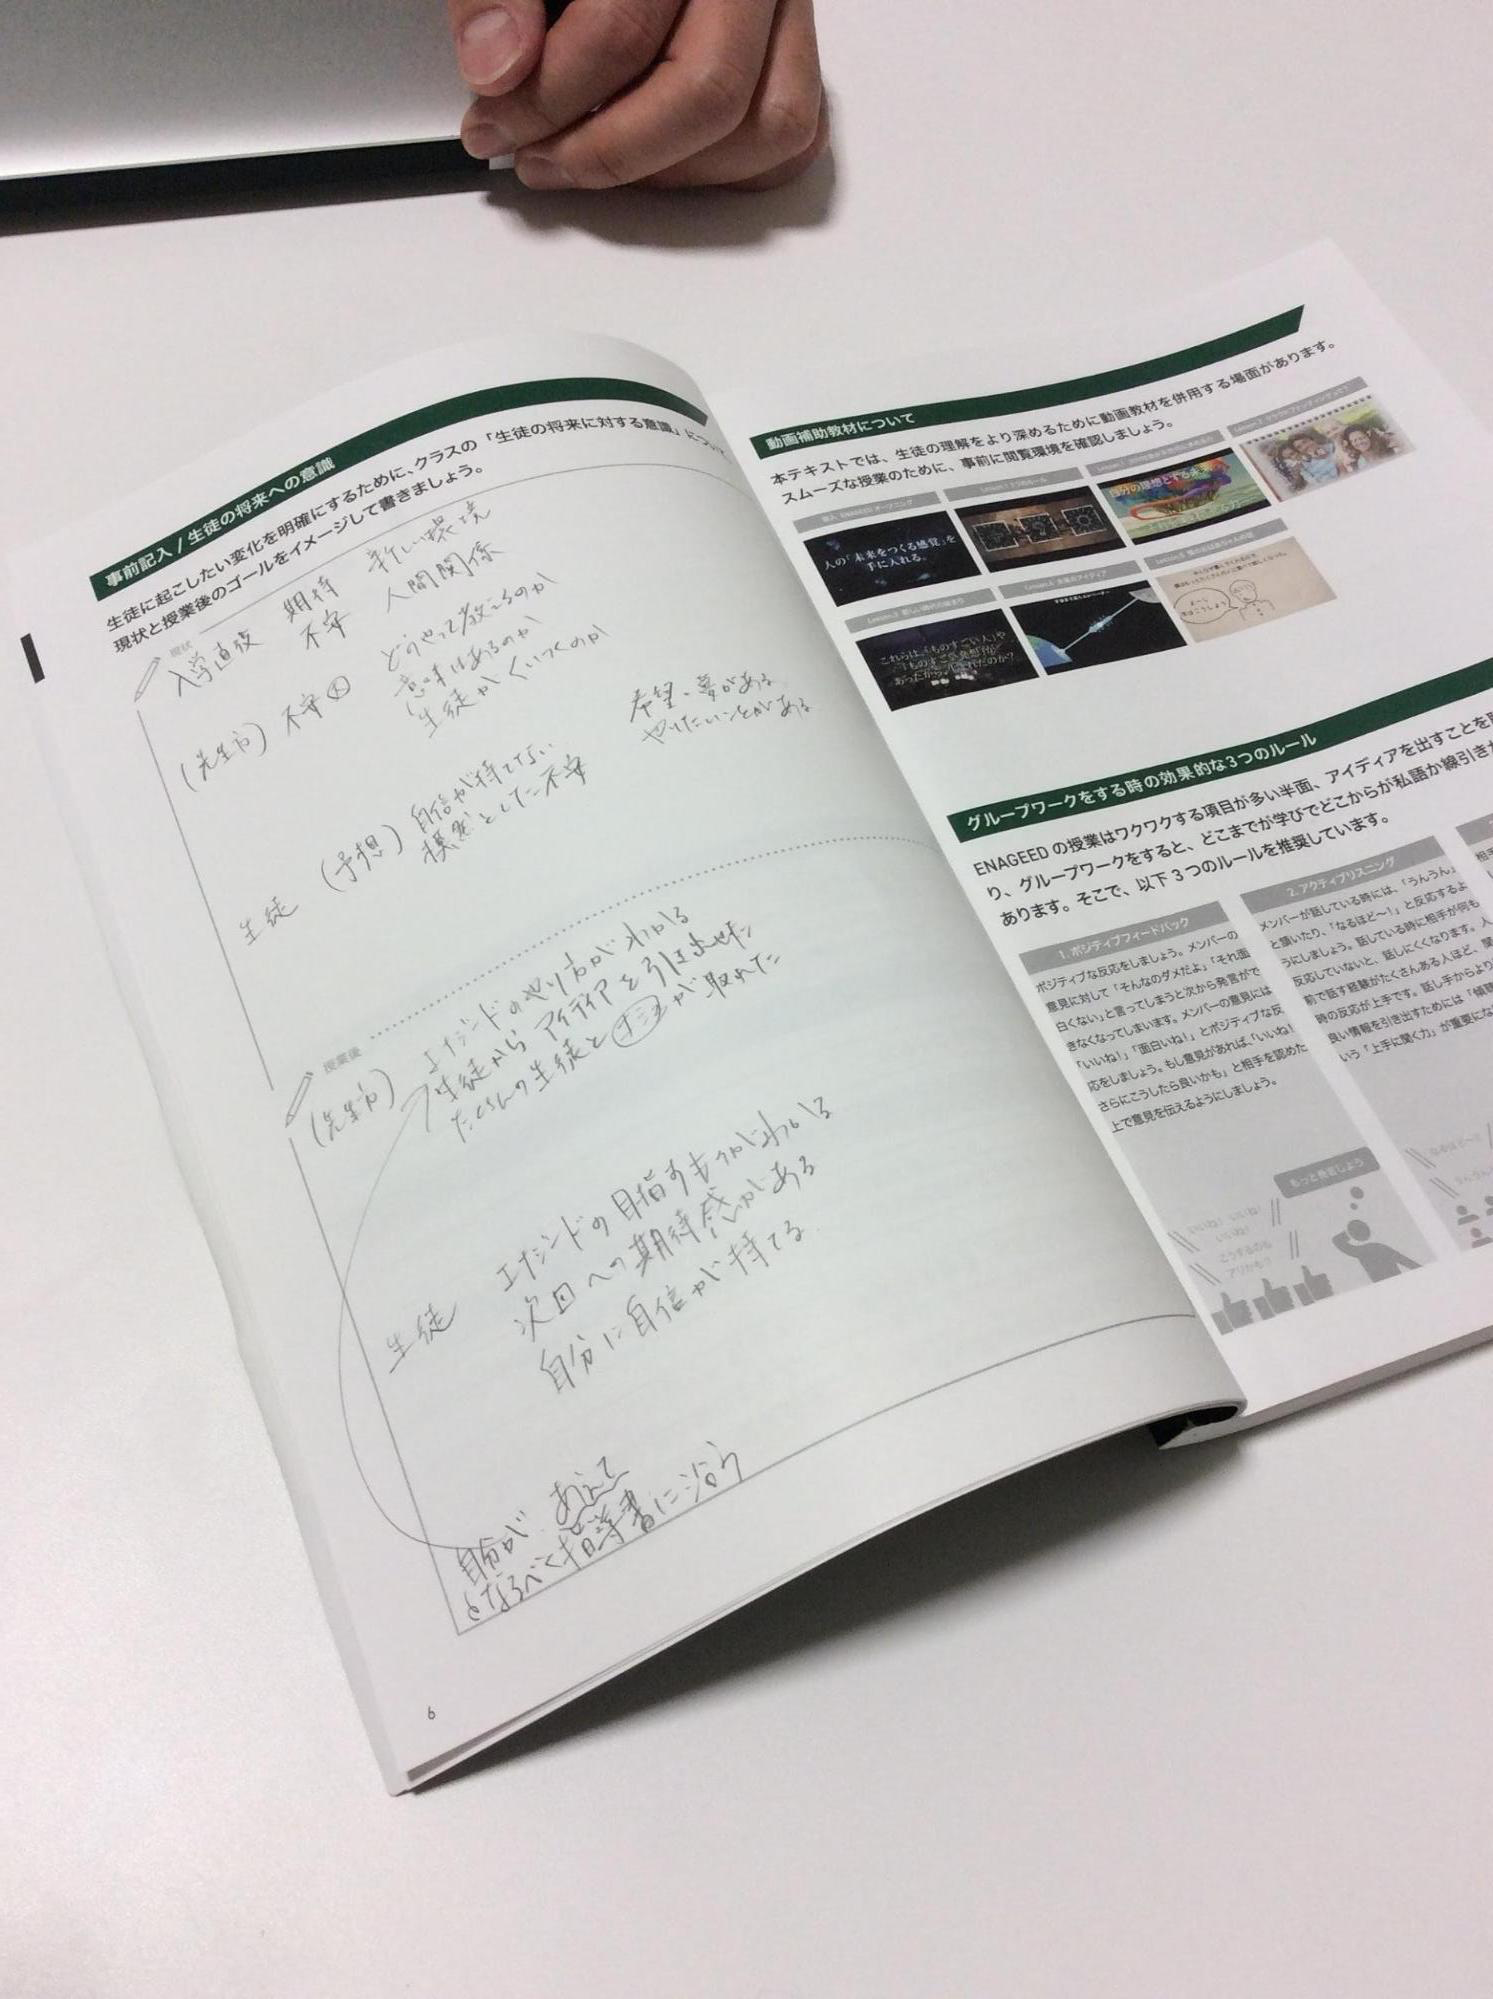 事前記入 / 生徒の将来への意識
生徒に起こしたい変化を明確にするために、クラスの「生徒の将来に対する意識」について
現状と授業後のゴールをイメージして書きましょう。
現状
入学直後 期待 新しい環境
不安 人間関係
(先生方) 不安大 どうやって教えるのか
意味はあるのか
生徒がくいつくのか
希望、夢がある
やりたいことがある
生徒 (予想) 自信が持てない
漠然とした不安
授業後
(先生方) エナジードのやり方がわかる
生徒からアイディアを引き出せた
たくさんの生徒と が取れた
生徒 エナジードの目指すものがわかる
次回への期待感がある
自分に自信が持てる
自分が あえて
なるべく指導書に沿う
6
動画補助教材について
本テキストでは、生徒の理解をより深めるために動画教材を併用する場面があります。
スムーズな授業のために、事前に閲覧環境を確認しましょう。
導入 ENAGEED オープニング
Lesson.1 3つのルール
人の「未来をつくる感覚」を
手に入れる。
自分の理想とする未来
これらは、「ものすごい人」や
「ものすごい発想」が
あったから
グループワークをする時の効果的な3つのルール
ENAGEED の授業はワクワクする項目が多い半面、アイディアを出すことを
り、グループワークをすると、どこまでが学びでどこからが私語か線引きが
あります。そこで、以下 3 つのルールを推奨しています。
1. ポジティブフィードバック
ポジティブな反応をしましょう。メンバーの
意見に対して「そんなのダメだよ」「それ面
白くない」と言ってしまうと次から発言がで
きなくなってしまいます。メンバーの意見には
「いいね!」「面白いね!」とポジティブな反
応をしましょう。もし意見があれば、「いいね!
さらにこうしたら良いかも」と相手を認めた
上で意見を伝えるようにしましょう。
もっと発言しよう
いいね! いいね!
いいね!
こうするのも
アリかも?
2. アクティブリスニング
メンバーが話している時には、「うんうん」
と頷いたり、「なるほど〜!」と反応するよ
うにしましょう。話している時に相手が何も
反応していないと、話しにくくなります。人
前で話す経験がたくさんある人ほど、聞
時の反応が上手です。話し手からより
良い情報を引き出すためには「傾聴
いう「上手に聞く力」が重要にな
なるほど〜!
うんうん